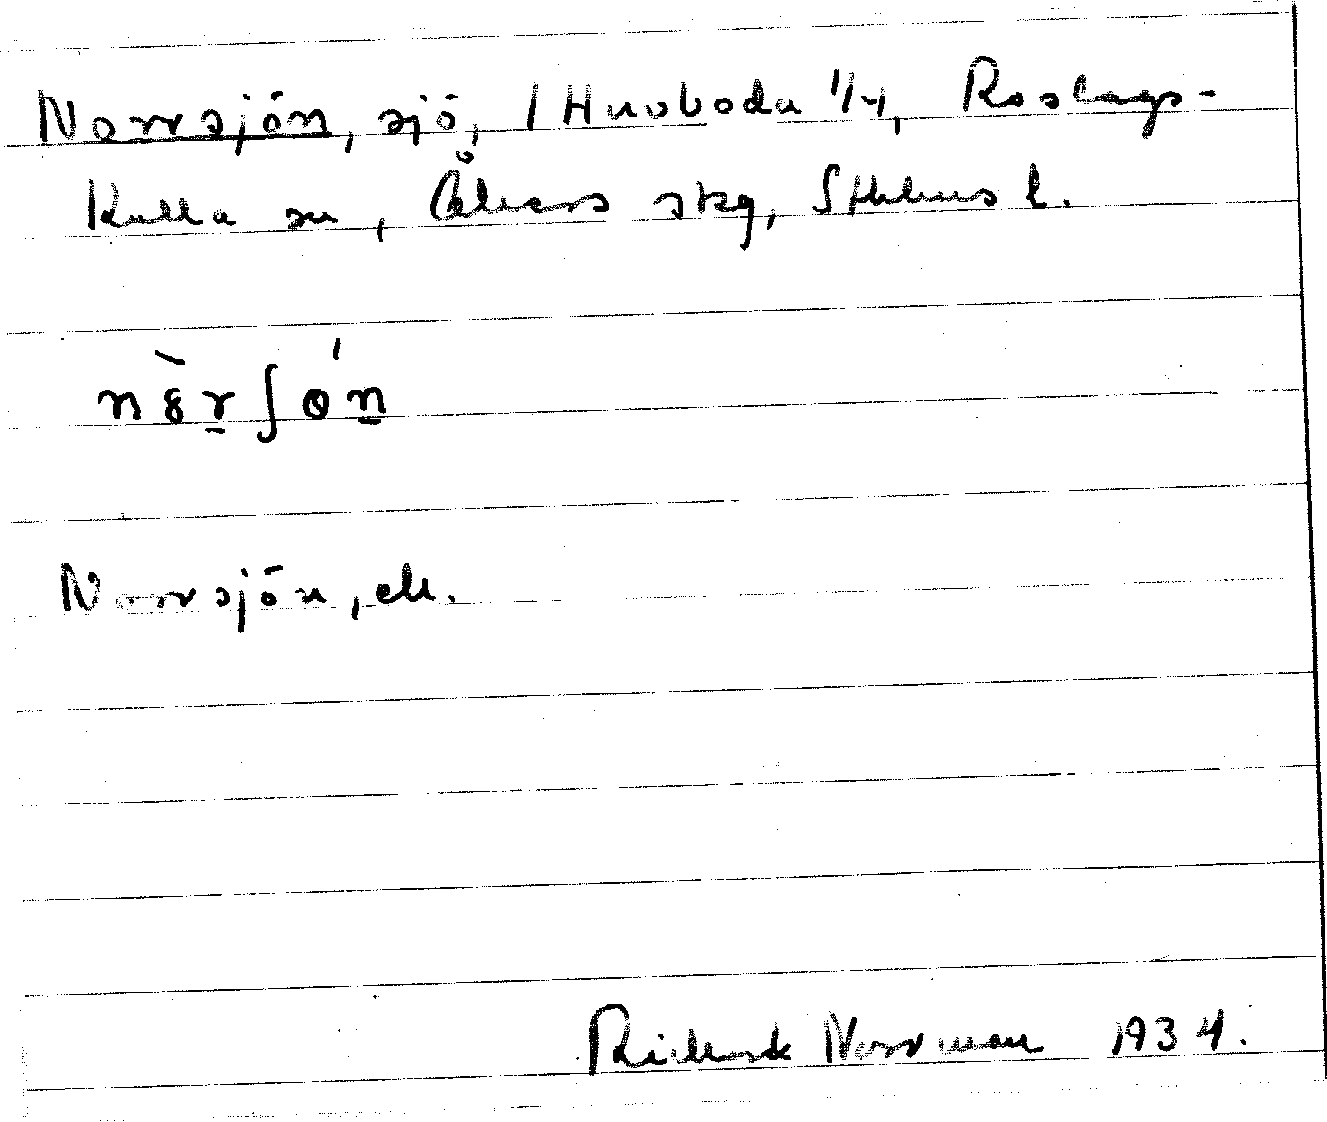 Norrsjön, sjö, i Husboda 1/4, Roslags-
Kulla sn, Åkers skg, Sthlms l.
Norrsjön, ek.
Rickard Norrman 1934.